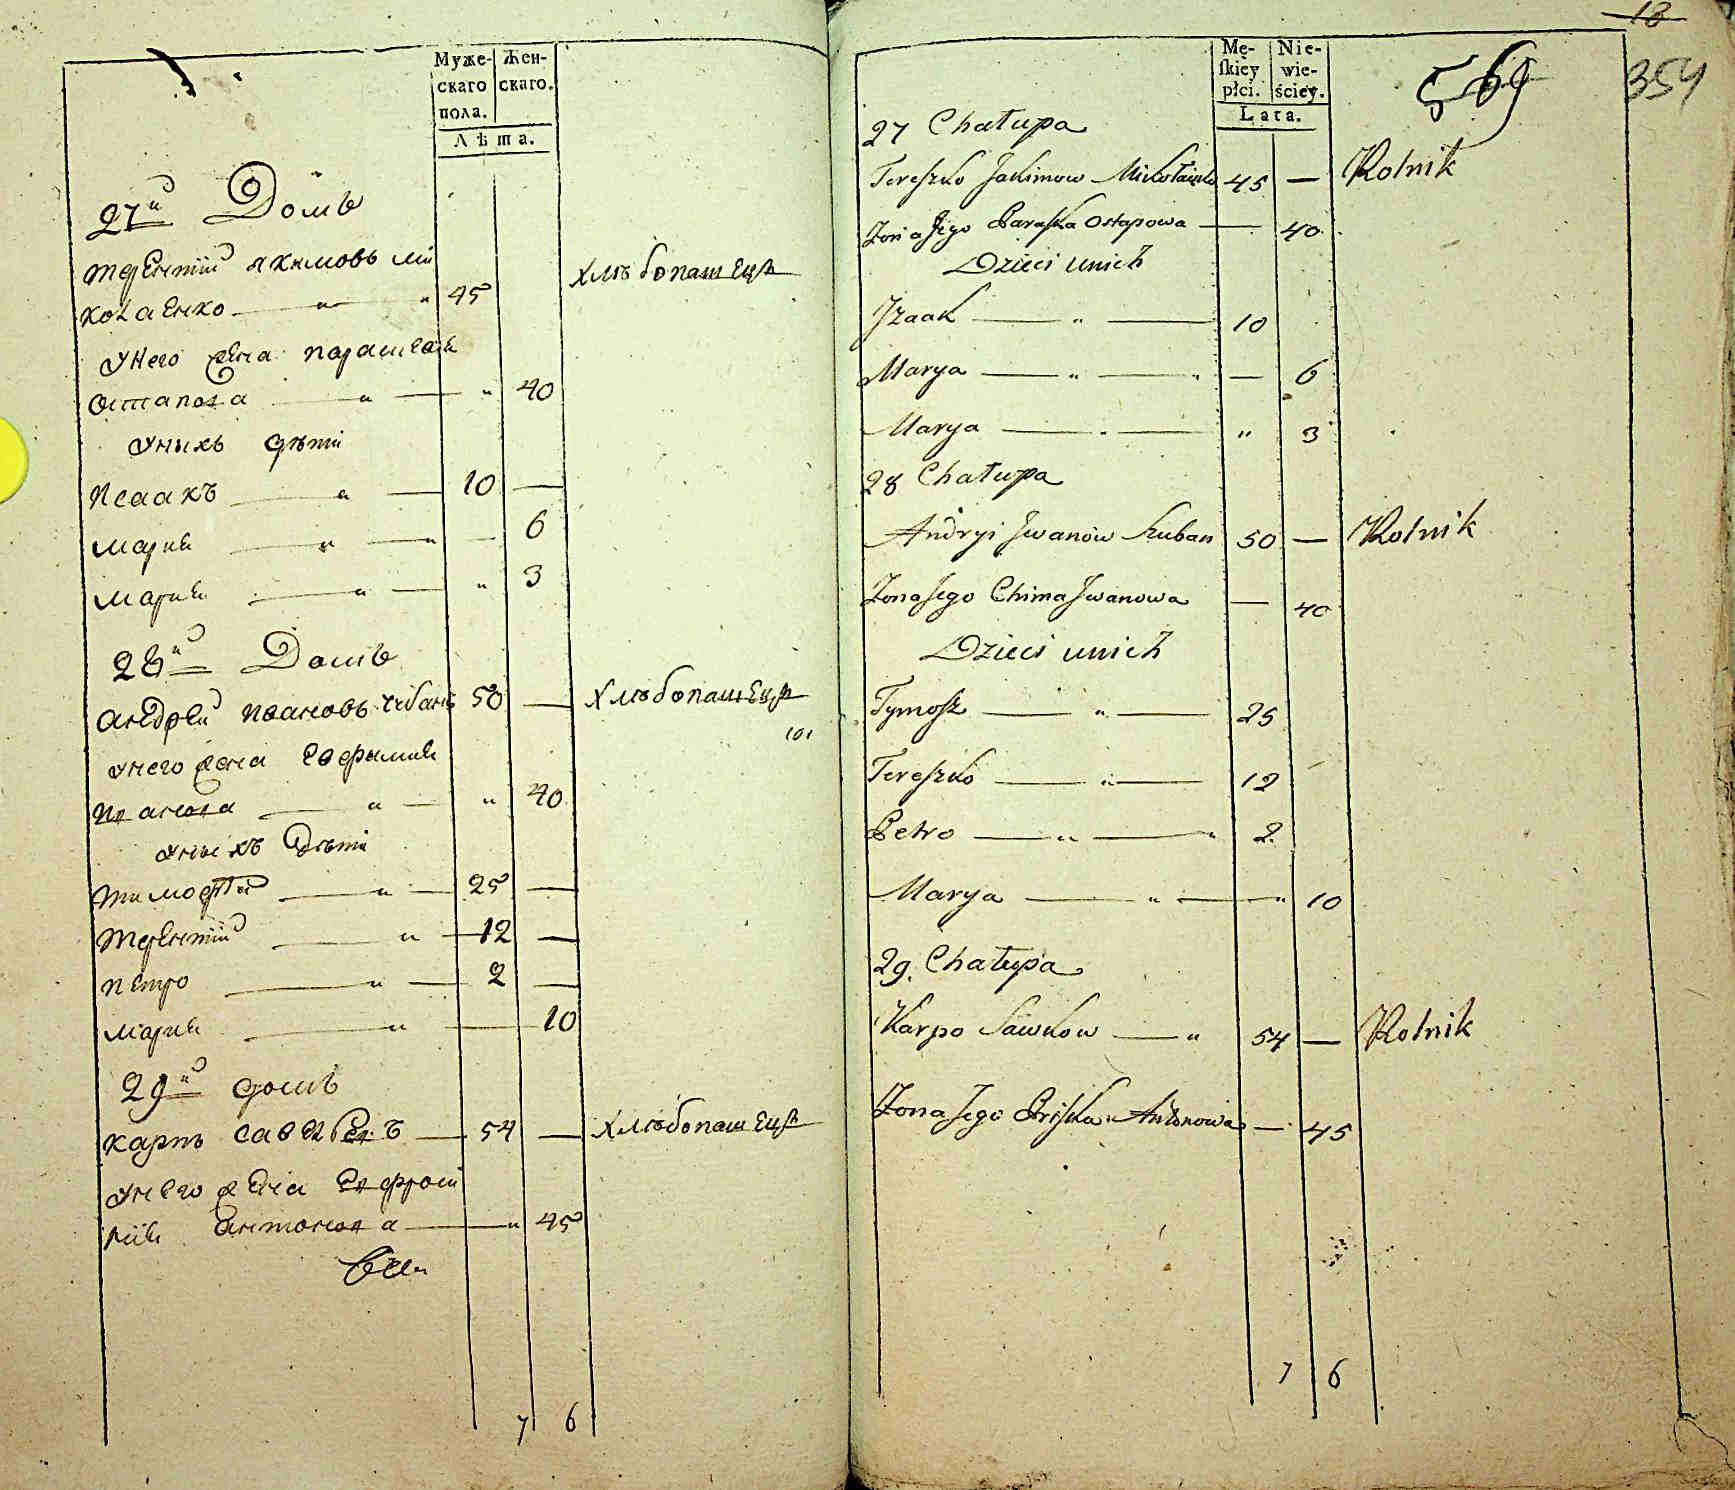 Муже-
скаго
пола.
Жен-
скаго.
Лѣта.
27й Домъ
терентій якимовъ ми
колаенко — " — " 45
хлѣбопашецъ
унего жена парасковя
остапова — " — " 40
унихъ дѣти
исаакъ — " — 10 —
мария — " — " — 6
мария — " — " 3
28й Домъ
андрей ивановъ чубань 50 —
хлѣбопашецъ
унего жена евфимия
иванова — " — " 40
унихъ дѣти
тимофей — " — 25 —
терентій — " — 12 —
петро — " — 2 —
мария — " — 10
29й домъ
карпъ савельевъ — 54 —
хлѣбопашецъ
унего жена евфроси
нія антонова — " 45
7 6
18
569
354
Mę-
skiey
płci.
Nie-
wie-
ściey.
Lata.
27 Chałupa
Tereszko Jakimow Mikołaienko 45 — Rolnik
Żona Jego Paraska Ostapowa — 40
Dzieci unich
Jzaak — " — 10
Marya — " — " — 6
Marya — " — " 3
28 Chałupa
Andryi Jwanów Szuban 50 — Rolnik
Żona Jego Chima Jwanowa — 40
Dzieci unich
Tymosz — " — 25
Tereszko — " — 12
Petro — " — " 2
Marya — " — " 10
29. Chałupa
Karpo Sawkow — " 54 — Rolnik
Żona Jego Pryska Antonowa — 45
7 6